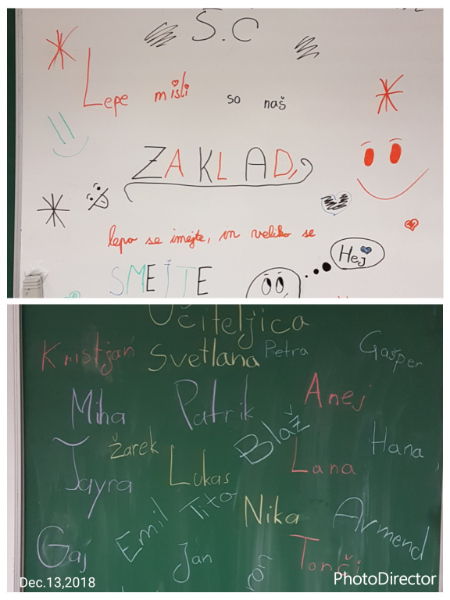 5.C
Lepe misli so naš
ZAKLAD,
lepo se imejte, in veliko se
SMEJTE
Hej
Učiteljica
Kristjan Svetlana Petra Gašper
Miha Patrik Anej
Žarek Blaž Hana
Tayra Lukas Lana
Emil Tito Nika Armend
Gaj Jan Tonči
Dec.13,2018 PhotoDirector